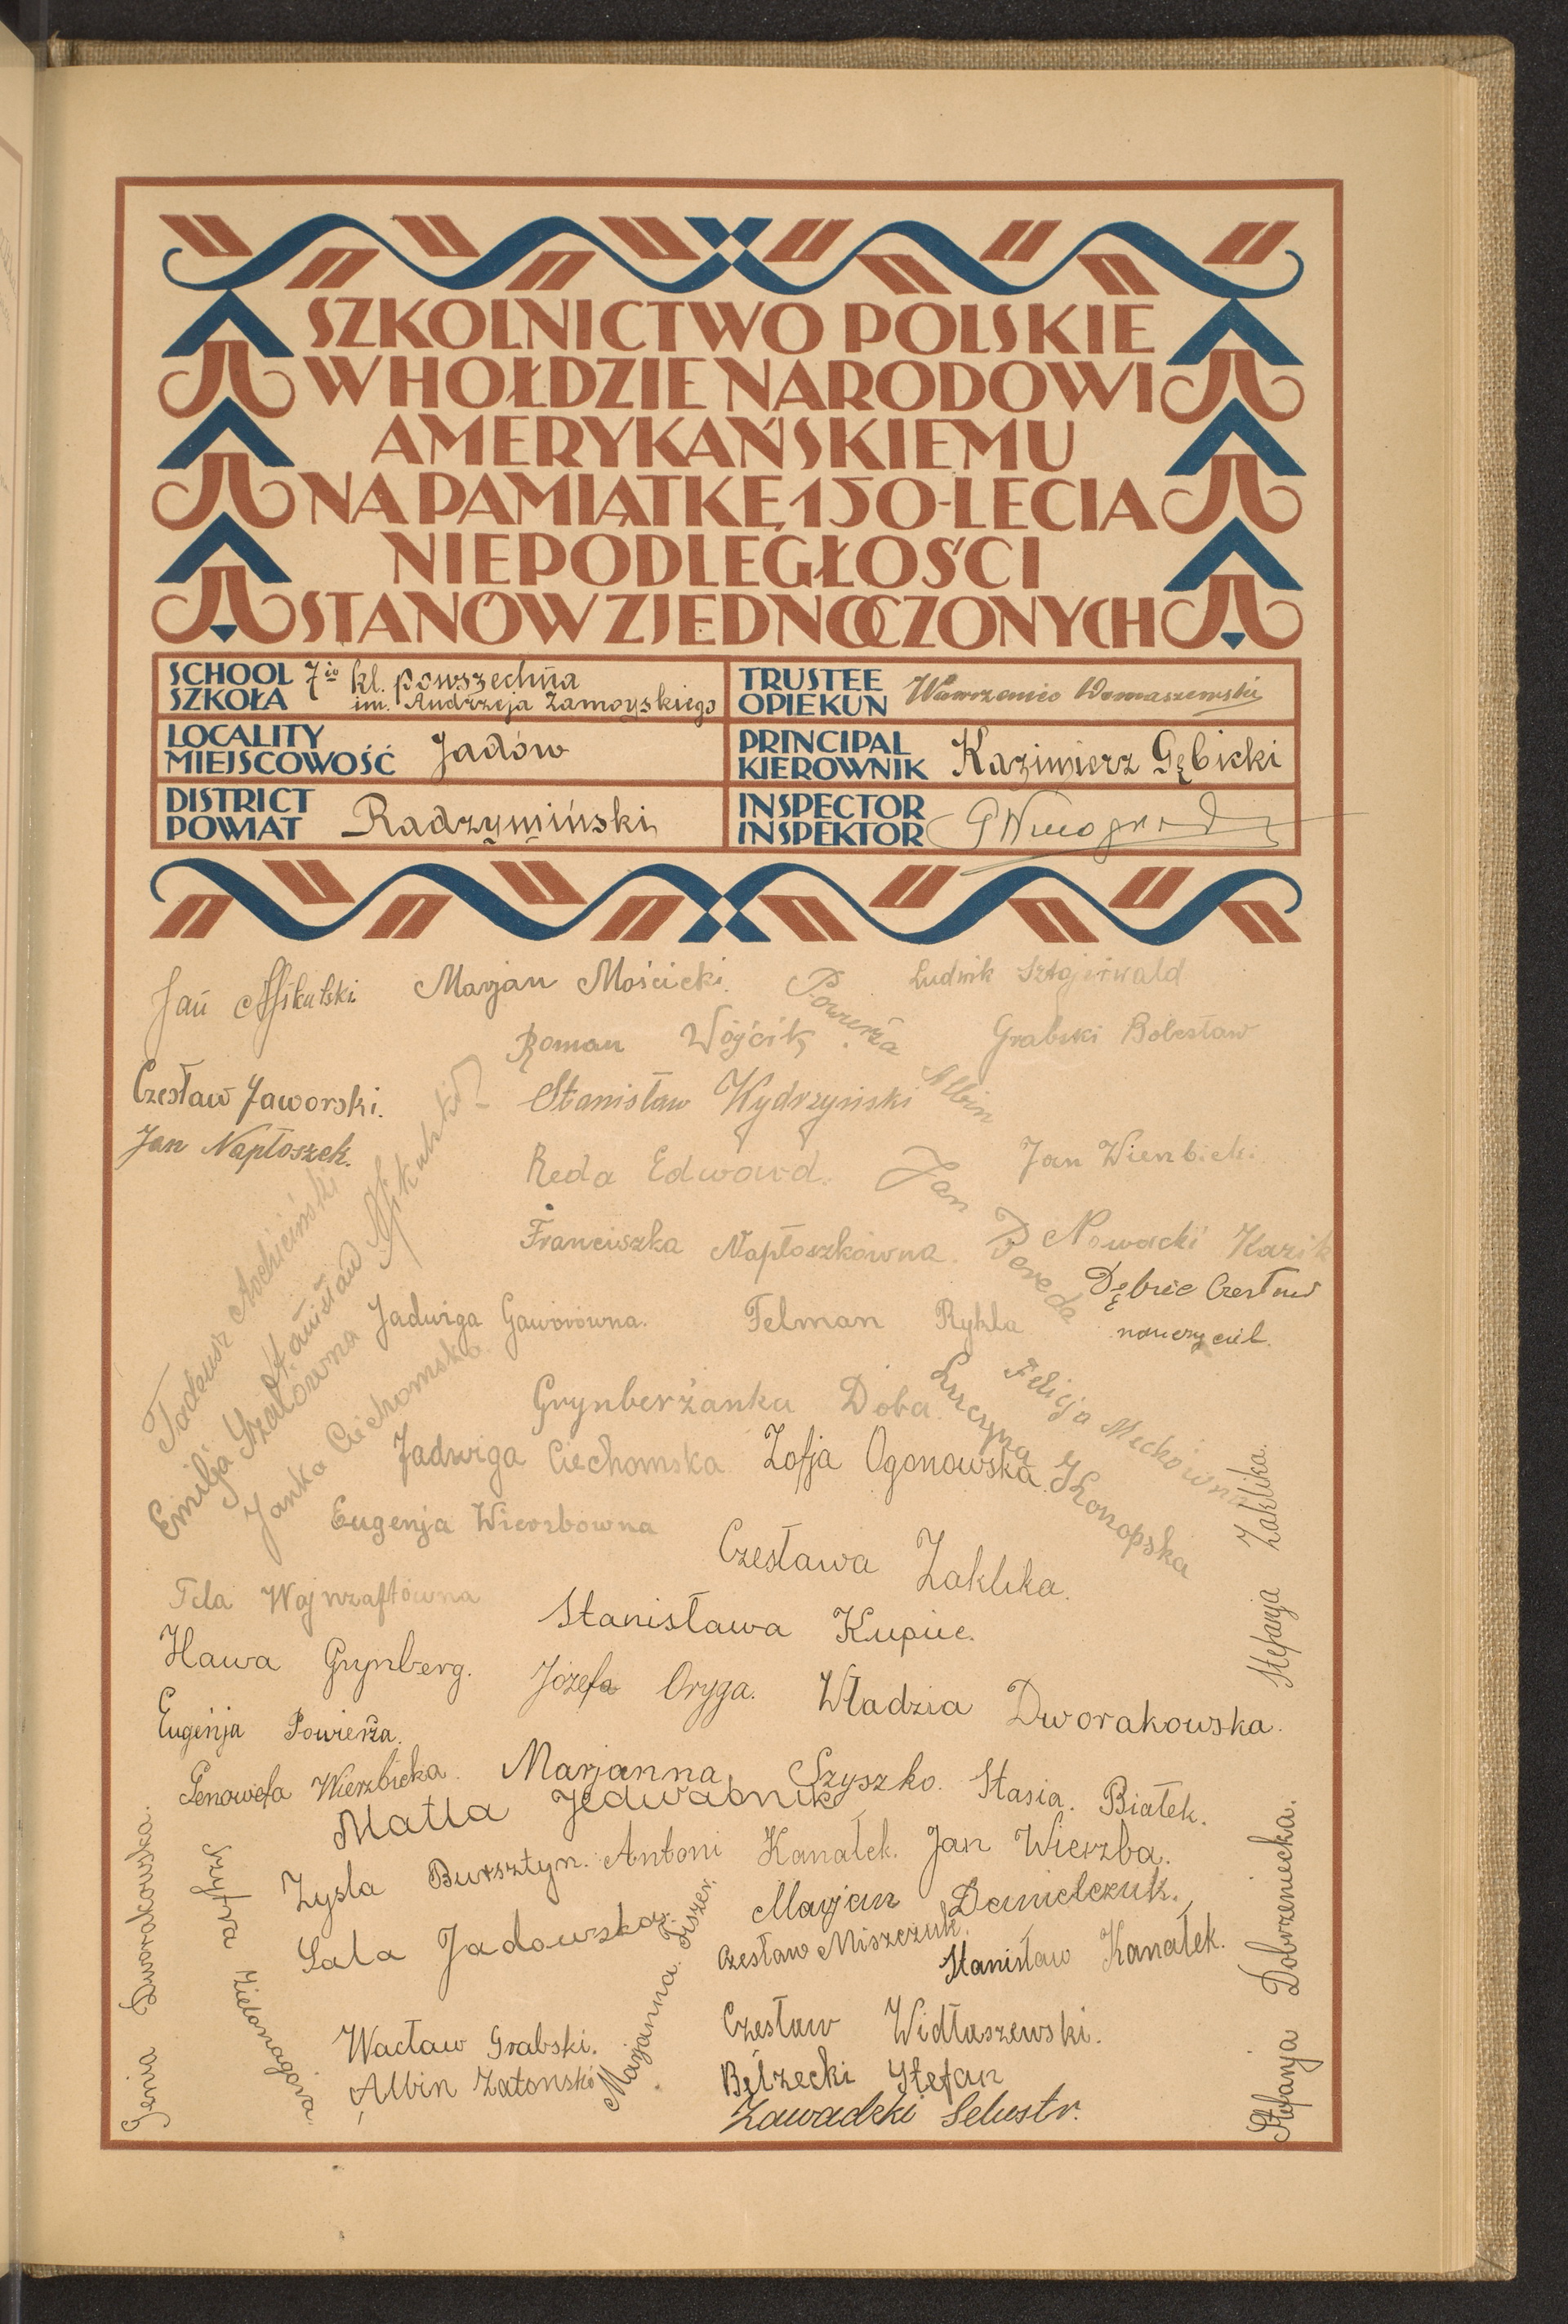 SZKOLNICTWO POLSKIE
W HOŁDZIE NARODOWI
AMERYKAŃSKIEMU
NA PAMIĄTKĘ 150-LECIA
NIEPODLEGŁOŚCI
STANÓW ZJEDNOCZONYCH
SCHOOL
SZKOŁA
7io kl. powszechna
im. Andrzeja Zamoyskiego
TRUSTEE
OPIEKUN
Wawrzeniec Domaszewski
LOCALITY
MIEJSCOWOŚĆ
Jadów
PRINCIPAL
KIEROWNIK
Kazimierz Gębicki
DISTRICT
POWIAT
Radzymiński
INSPECTOR
INSPEKTOR
Jan Mikulski
Marjan Mościcki.
Powierża Albin
Ludwik Sztajerwald
Roman Wójcik
Grabski Bolesław
Czesław Jaworski.
Stanisław Wydrzyński
Jan Napłoszek.
Reda Edward.
Jan Bereda
Jan Wierzbicki
Franciszka Napłoszkówna.
Nowacki Kazik
Dębiec Czesław
nauczyciel.
Tadeusz
Stanisław Mikulski
Emilja
Janka Ciechomska
Jadwiga Gaworówna.
Felman Rykla
Grynberżanka Doba.
Felicja Mechówna
Lucyna Konopska
Jadwiga Ciechomska
Zofja Ogonowska.
Eugenja Wierzbówna
Czesława Zaklika.
Stefanja Zaklika.
Fela
Stanisława Kupiec.
Hawa Grynberg.
Józefa Oryga.
Władzia Dworakowska.
Eugenja Powierża.
Genowefa Wierzbicka.
Marjanna Szyszko.
Stasia. Białek.
Matla Jedwabnik
Zysla Bursztyn.
Antoni Kanałek.
Jan Wierzba.
Marjan Danielczuk.
Sala Jadowska.
Marjanna Fiszer.
Czesław Miszczuk.
Stanisław Kanałek.
Genia Dworakowska.
Szyfra Zielonagóra.
Wacław Grabski.
Albin Zatoński
Czesław Widłaszewski.
Bełzecki Stefan
Zawadzki Selustr.
Stefanja Dobrzeniecka.